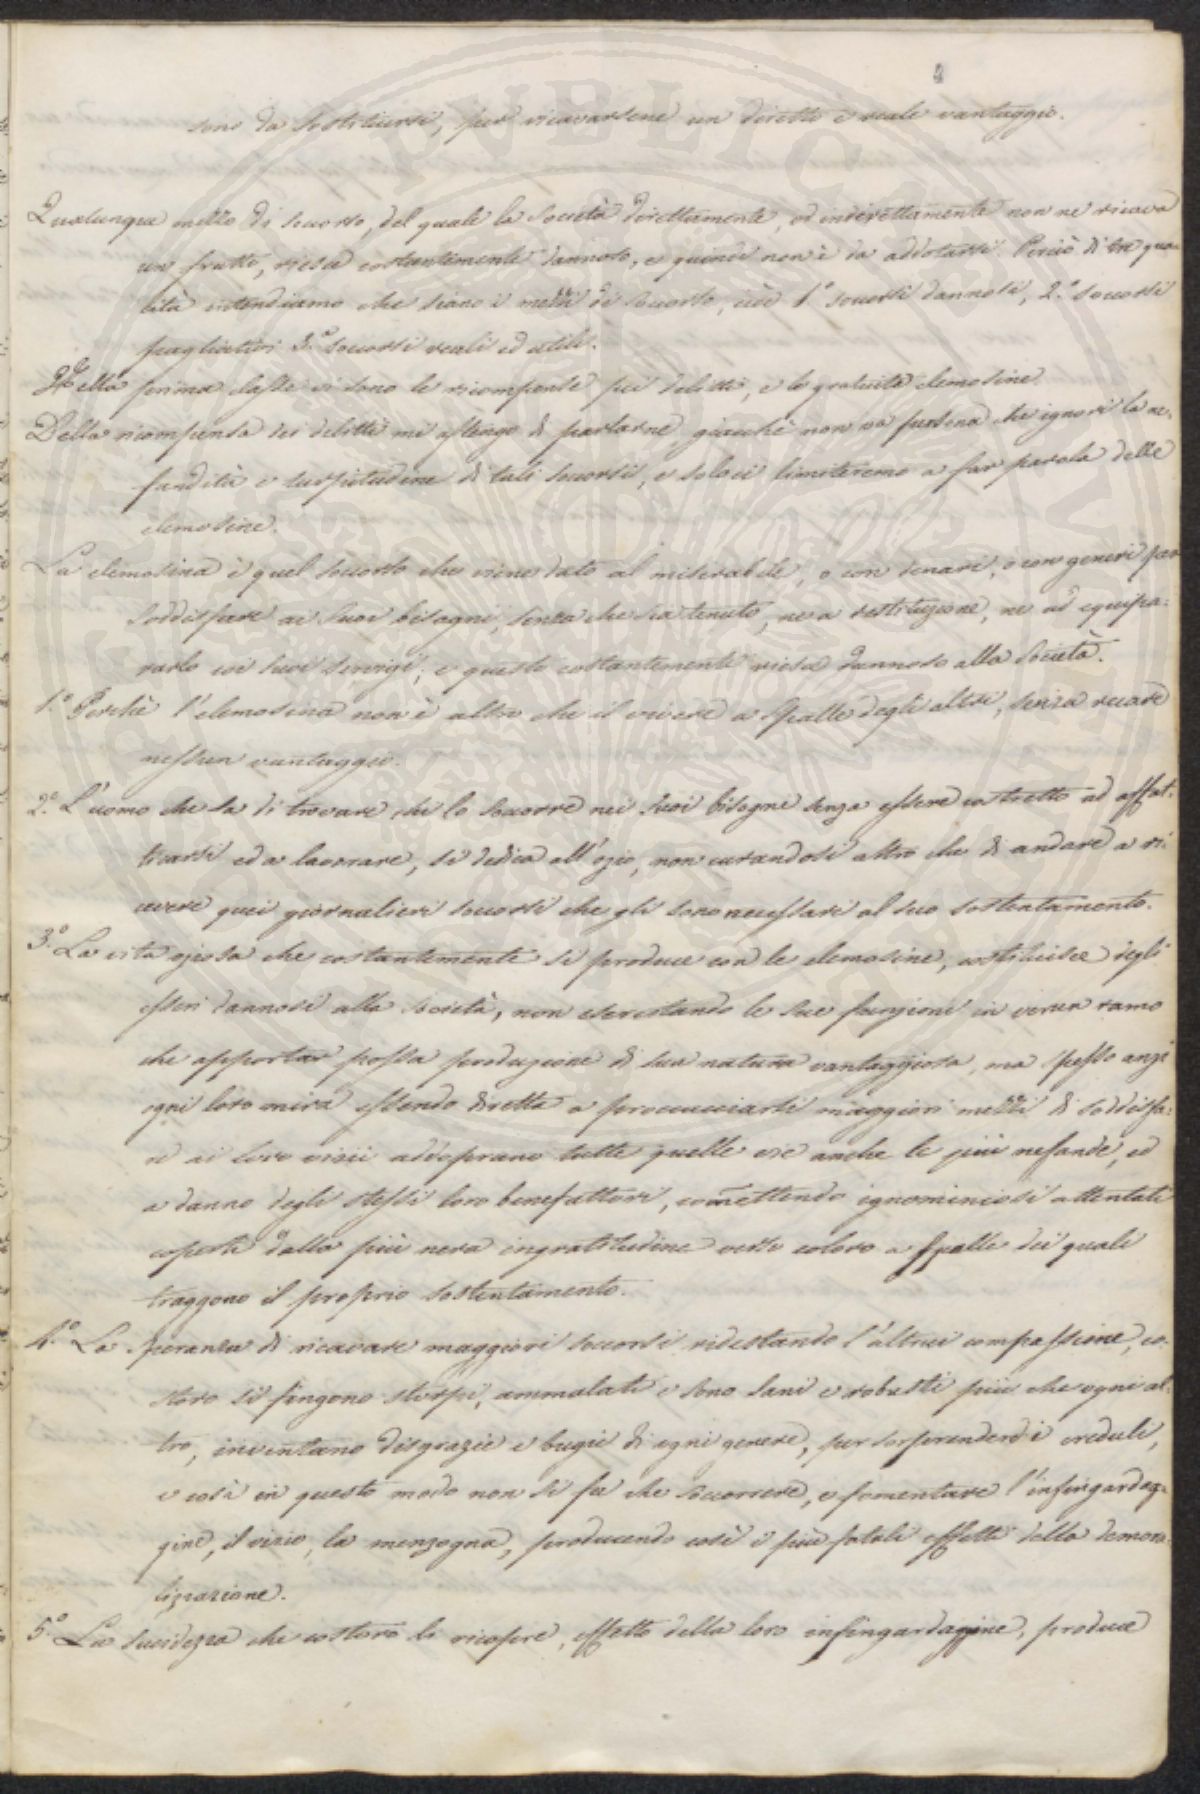 sono da sostituirsi, per ricavarsene un diretto e reale vantaggio.
Qualunque mezzo di soccorso, del quale la Società direttamente, od indirettamente non ne ricava
un frutto, riesce costantemente dannoso, e quindi non è da addotarsi. Perciò di tre qua-
lità intendiamo che siano i mezzi di soccorso, cioè 1.° soccorsi dannosi, 2.° soccorsi
pagliativi 3.° soccorsi reali ed utili.
Nella prima classe vi sono le ricompense pei delitti, e le gratuite elemosine.
Della ricompensa dei delitti mi astengo di parlarne, giacchè non va persona che ignori la ne-
fandità e turpitudine di tali soccorsi, e solo ci limiteremo a far parola delle
elemosine.
La elemosina è quel soccorso che viene dato al miserabile, o con denari, o con generi per
soddisfare ai suoi bisogni, senza che sia tenuto, ne a restituzione, ne ad equipa:
rarlo coi suoi servigi; e questo costantemente riesce dannoso alla Società.
1.° Perchè l'elemosina non è altro che il vivere a spalle degli altri, senza recare
nessun vantaggio.
2.° L'uomo che sa di trovare chi lo soccorre nei suoi bisogni senza essere costretto ad affat-
ticarsi ed a lavorare, si dedica all'ozio, non curandosi altro che di andare a ri:
cevere quei giornalieri soccorsi che gli sono necessari al suo sostentamento.
3.° La vita oziosa che costantemente si produce con le elemosine, costituisce degli
esseri dannosi alla società, non esercitando le sue funzioni in verun ramo
che apportar possa produzione di sua natura vantaggiosa, ma spesso anzi
ogni loro mira essendo diretta a procucciarsi maggiori mezzi di soddisfa:
re ai loro vizii addoprano tutte quelle vie anche le più nefande, ed
a danno degli stessi loro benefattori, comettendo ignominiosi attentati
coperti dalla più nera ingratitudine verso coloro a spalle dei quali
traggono il proprio sostentamento.
4.° La speranza di ricavare maggiori soccorsi ridestando l'altrui compassione, co:
storo si fingono storpi, ammalati e sono sani e robusti più che ogni al:
tro, inventano disgrazie e bugie di ogni genere, per sorprendere i creduli,
e così in questo modo non si fa che soccorrere, e fomentare l'infingardag-
gine, il vizio, la menzogna, producendo così i più fatali effetti della demora-
lizzazione.
5.° La sucidezza che costoro li ricopre, effetto della loro infingardaggine, produce